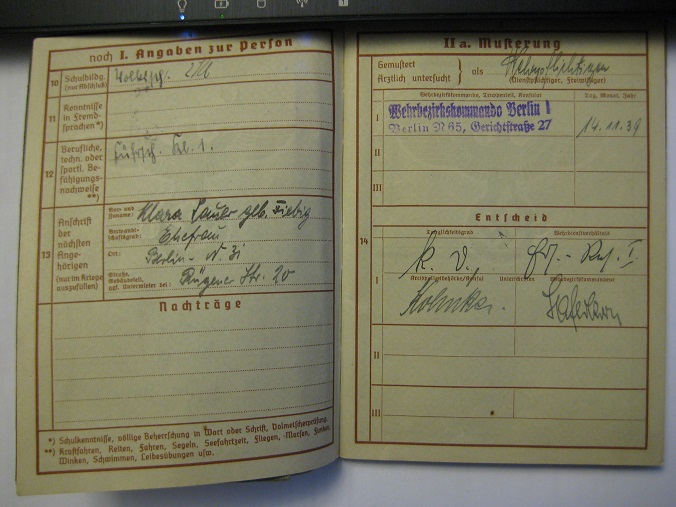 noch I. Angaben zur Person
10 Schulbildg.
(nur Abschluß)
Volkssch.
11 Kenntnisse
in Fremd-
sprachen *)
12 Berufliche,
techn. oder
sportl. Be-
fähigungs-
nachweise
**)
Führsch. Kl. 1.
13 Anschrift
der
nächsten
Ange-
hörigen
(nur im Kriege
auszufüllen)
Vor- und
Zuname:
Klara Sauer geb. Fiebig
Verwandt-
schaftsgrad:
Ehefrau
Ort:
Berlin - N. 31
Straße,
Gebäudeteil,
ggf. Untermieter bei:
Rügener Str. 20
Nachträge
*) Schulkenntnisse, völlige Beherrschung in Wort oder Schrift, Dolmetscherprüfung.
**) Kraftfahren, Reiten, Fahren, Segeln, Seefahrtzeit, Fliegen, Morsen, Funken,
Winken, Schwimmen, Leibesübungen usw.
II a. Musterung
Gemustert
Ärztlich untersucht
als
Wehrpflichtiger
(Dienstpflichtiger, Freiwilliger)
Wehrbezirkskommando, Truppenteil, Konsulat
Tag, Monat, Jahr
I
Wehrbezirkskommando Berlin I
Berlin N 65, Gerichtstraße 27
14.11.39
II
III
Entscheid
14
Tauglichkeitsgrad
Wehrdienstverhältnis
k. v.
Ers.- Res. I
I
Unterschriften
II
III